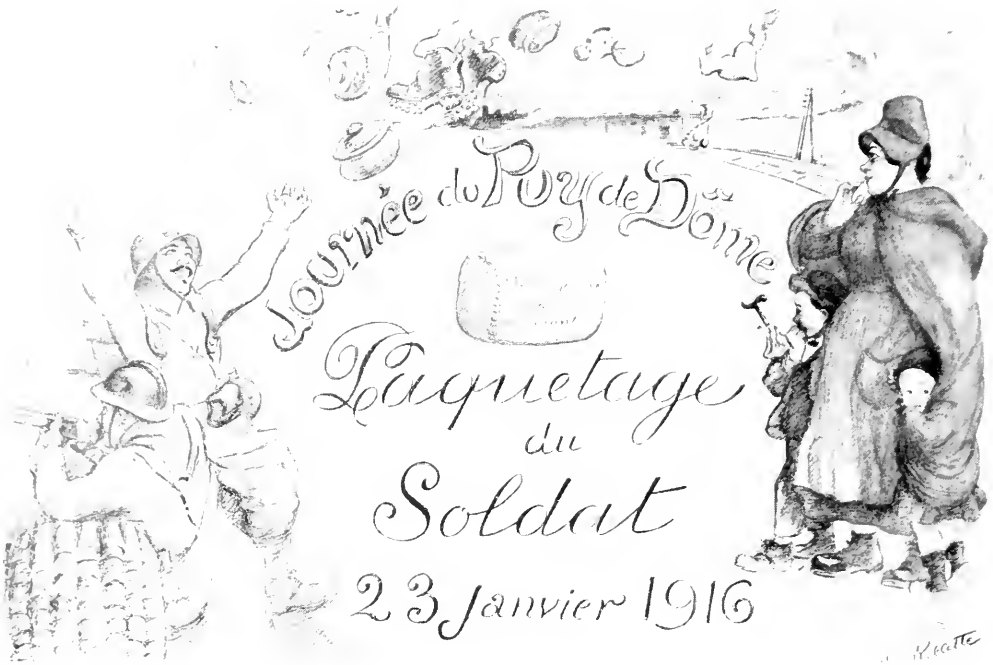 Journée du Puy de Dôme
Paquetage
du
Soldat
23 Janvier 1916